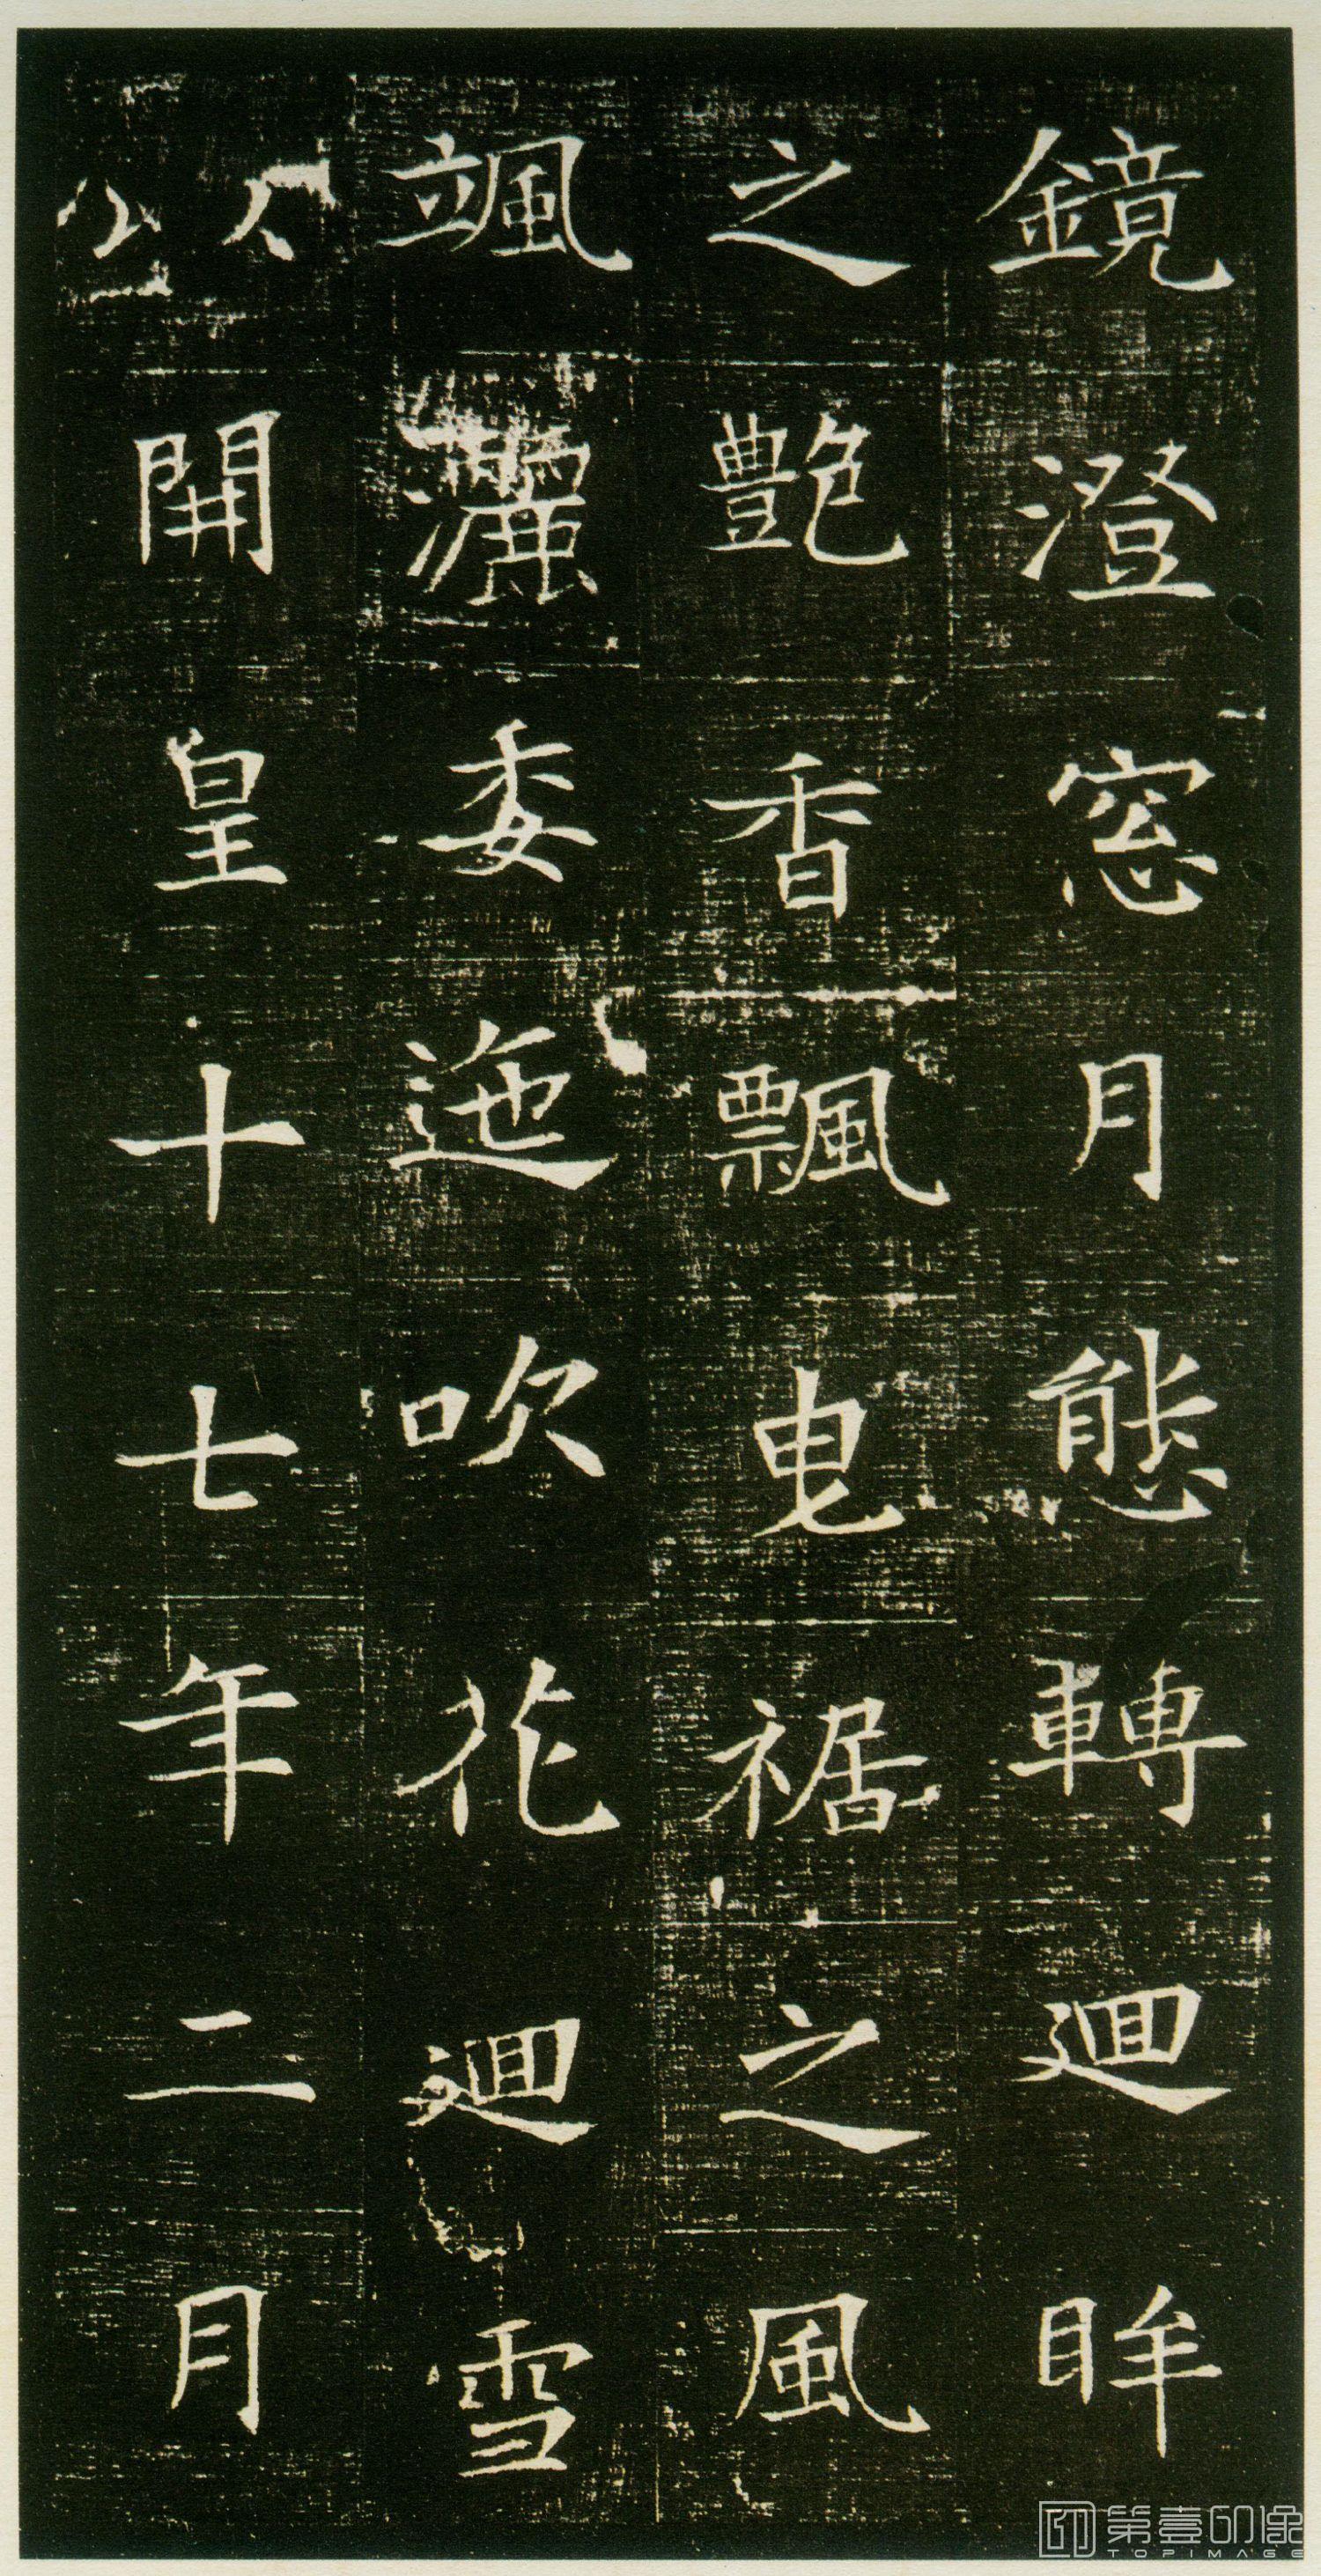 鏡澄窓月態轉迴眸
之艶香飄曳裾之風
颯灑委迤吹花迴雪
以開皇十七年二月
第壹印像
TOPIMAGE